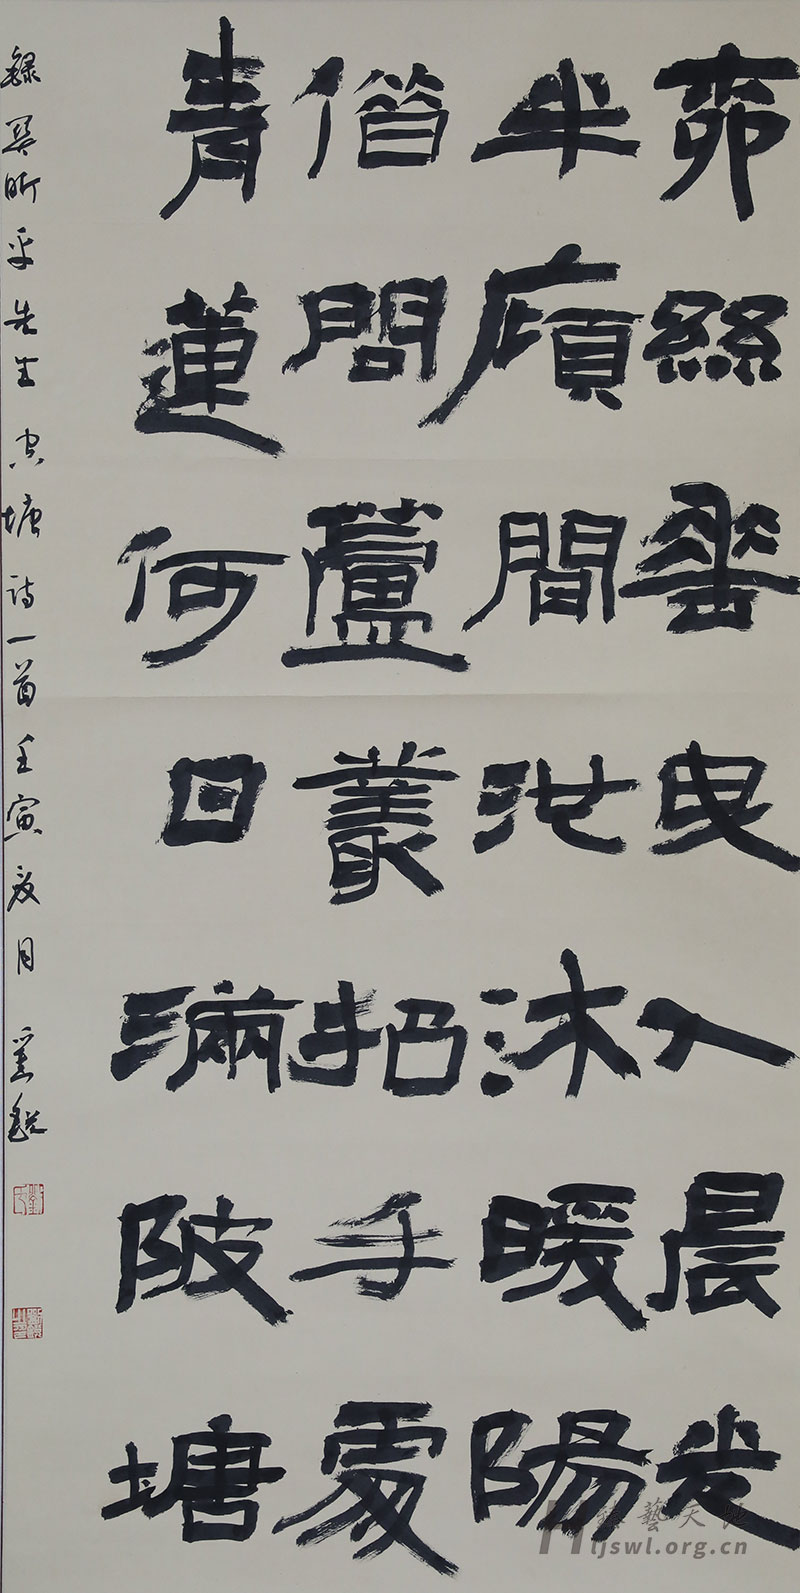 柳絲垂曳入晨光
半頃間池沐暖陽
借問蘆叢招手處
青蓮何日滿陂塘
錄吳昕孚先生空塘詩一首壬寅夏月
ljswl.org.cn